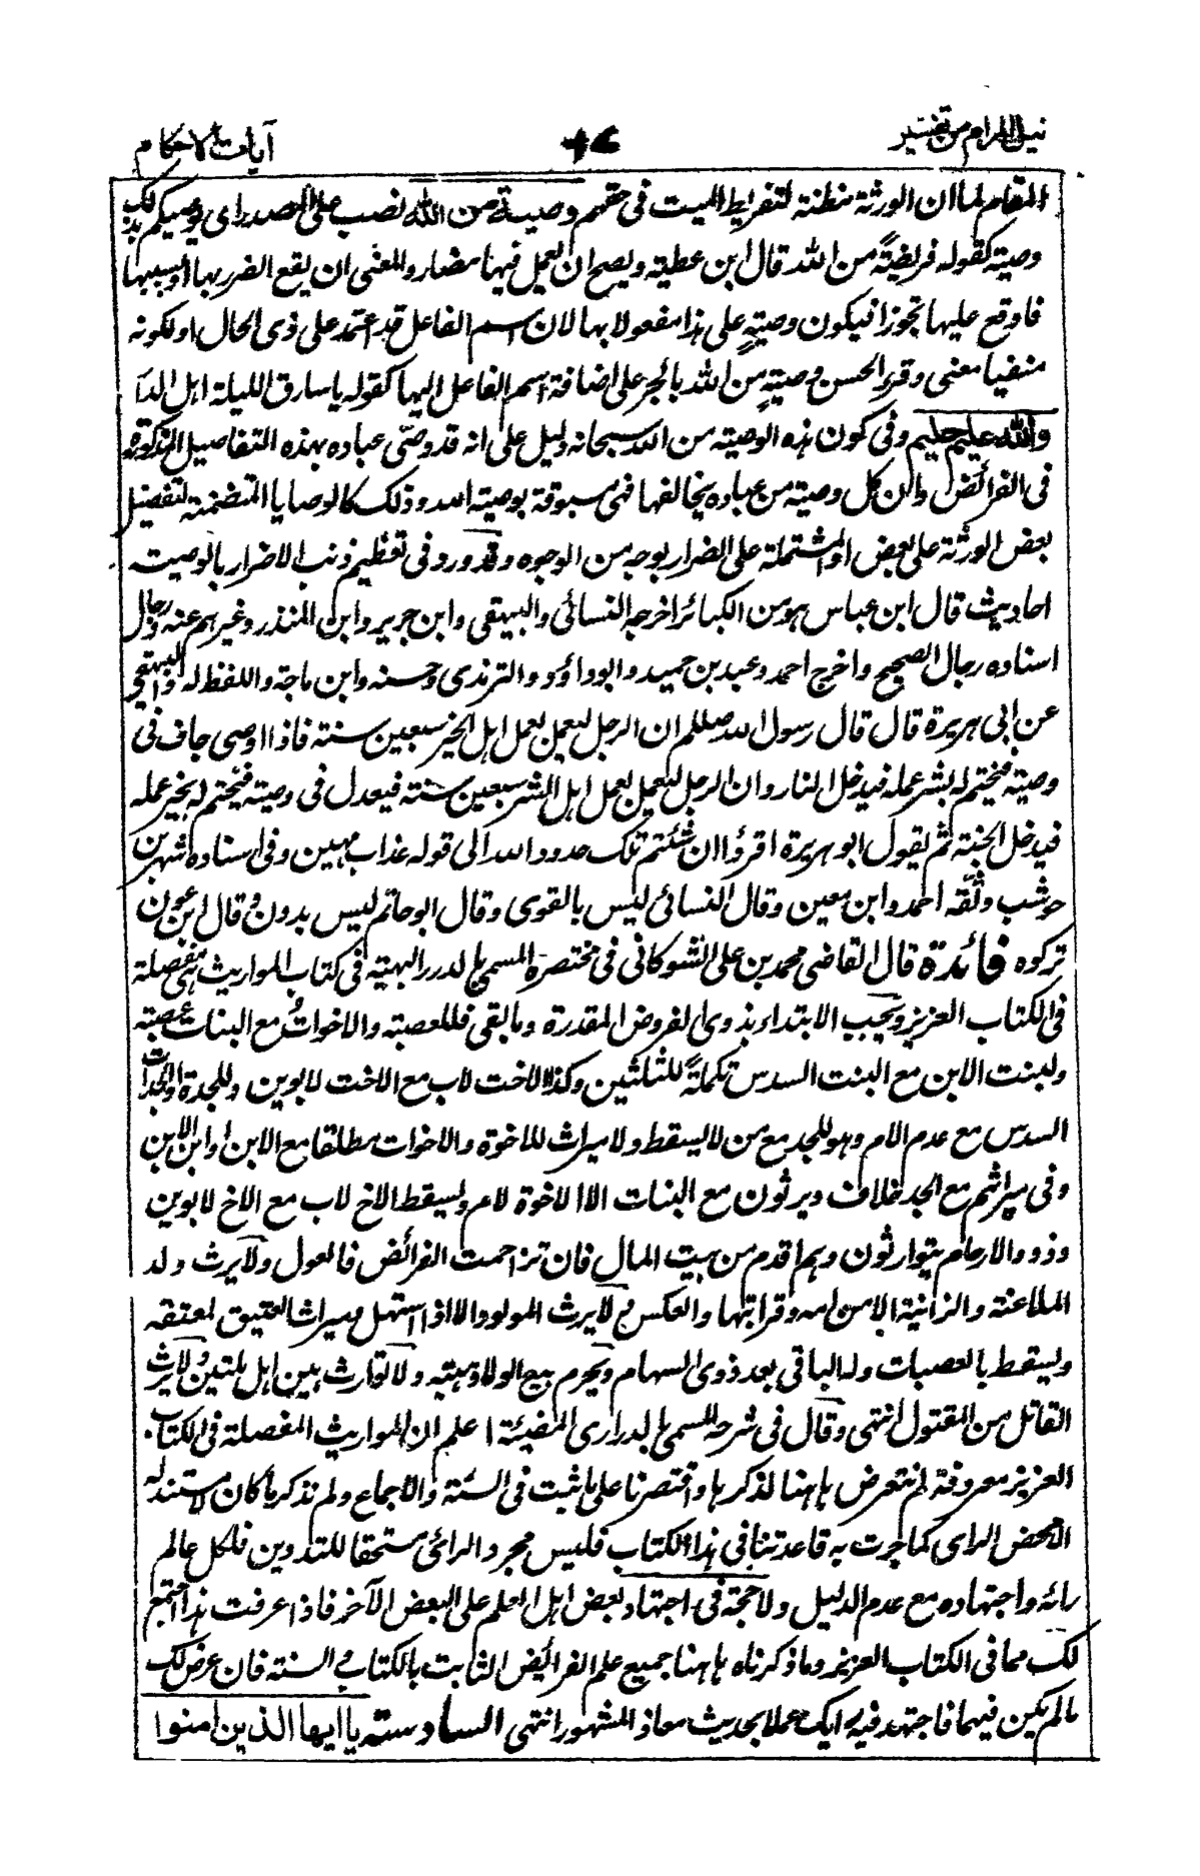 نيل المرام من تفسير
٩٤
آيات الاحكام
المقام لما ان الورثة مظنة لتفريط الميت فى حقهم وصية من الله نصب على المصدر اى يوصيكم بذلك
وصية كقوله فريضةً من الله قال ابن عطية ويصح ان يعمل فيها مضار والمعنى ان يقع الضرر بها او بسببها
فاوقع عليها تجوزا فيكون وصيةٍ على هذا مفعولا بها لان اسم الفاعل قد اعتمد على ذى الحال او لكونه
منفيا معنى وقرء الحسن وصيةٍ من الله بالجر على اضافة اسم الفاعل اليها كقوله يا سارق الليلة اهل الدار
والله عليم حليم وفى كون هذه الوصية من الله سبحانه دليل على انه قد وصّى عباده بهذه التفاصيل المذكورة
فى الفرائض وان كل وصية من عباده يخالفها فهى مسبوقة بوصية الله وذلك كالوصايا المتضمنة لتفضيل
بعض الورثة على بعض او المشتملة على الضرار بوجه من الوجوه وقد ورد فى تعظيم ذنب الاضرار بالوصية
احاديث قال ابن عباس هو من الكبائر اخرجه النسائى والبيهقى وابن جرير وابن المنذر وغيرهم عنه ورجال
اسناده رجال الصحيح واخرج احمد وعبد بن حميد وابو داؤد والترمذى وحسنه وابن ماجة واللفظ له والبيهقى
عن ابى هريرة قال قال رسول الله صللم ان الرجل ليعمل بعمل اهل الخير سبعين سنة فاذا اوصى جاف فى
وصية فيختم له بشر عمله فيدخل النار وان الرجل ليعمل بعمل اهل الشر سبعين سنة فيعدل فى وصية فيختم له بخير عمله
فيدخل الجنة ثم يقول ابو هريرة اقرؤا ان شئتم تلك حدود الله الى قوله عذاب مهين وفى اسناده شهر بن
حوشب وثقه احمد وابن معين وقال النسائى ليس بالقوى وقال ابو حاتم ليس بدون وقال ابن عون
تركوه فائدة قال القاضى محمد بن على الشوكانى فى مختصره المسمى بالدرر البهية فى كتاب المواريث هى مفصلة
فى الكتاب العزيز ويجب الابتداء بذوى الفروض المقدرة وما بقى فللعصبة والاخوات مع البنات عصبة
ولبنت الابن مع البنت السدس تكملةً للثلثين وكذا الاخت لاب مع الاخت لابوين وللجدة او الجدات
السدس مع عدم الام وهو للجد مع من لا يسقط ولا ميراث للاخوة والاخوات مطلقا مع الابن او ابن الابن
وفى ميراثهم مع الجد خلاف ويرثون مع البنات الا الاخوة لام ويسقط الاخ لاب مع الاخ لابوين
وذوو الارحام يتوارثون وهم اقدم من بيت المال فان تزاحمت الفرائض فالعول ولا يرث ولد
الملاعنة والزانية الا من امه وقرابتها والعكس ولا يرث المولود الا اذا استهل وميراث العتيق لمعتقه
ويسقط بالعصبات وله الباقى بعد ذوى السهام ويحرم بيع الولا وهبته ولا توارث بين اهل ملتين ولا يرث
القاتل من المقتول انتهى وقال فى شرحه المسمى بالدرارى المضيئة اعلم ان المواريث المفصلة فى الكتاب
العزيز معروفة لم نتعرض هاهنا لذكرها واقتصرنا على ما ثبت فى السنة والاجماع ولم نذكر ما كان لا مستند له
الا محض الراى كما جرت به قاعدتنا فى هذا الكتاب فليس مجرد الرائى مستحقا للتدوين فلكل عالم
رائه واجتهاده مع عدم الدليل ولا حجة فى اجتهاد بعض اهل العلم على البعض الآخر فاذا عرفت هذا اجتمع
لك مما فى الكتاب العزيز وما ذكرناه هاهنا جميع علم الفرائض الثابت بالكتاب والسنة فان عرض لك
مالم يكن فيهما فاجتهد فيه رايك عملا بحديث معاذ المشهور انتهى السادسته يا ايها الذين امنوا